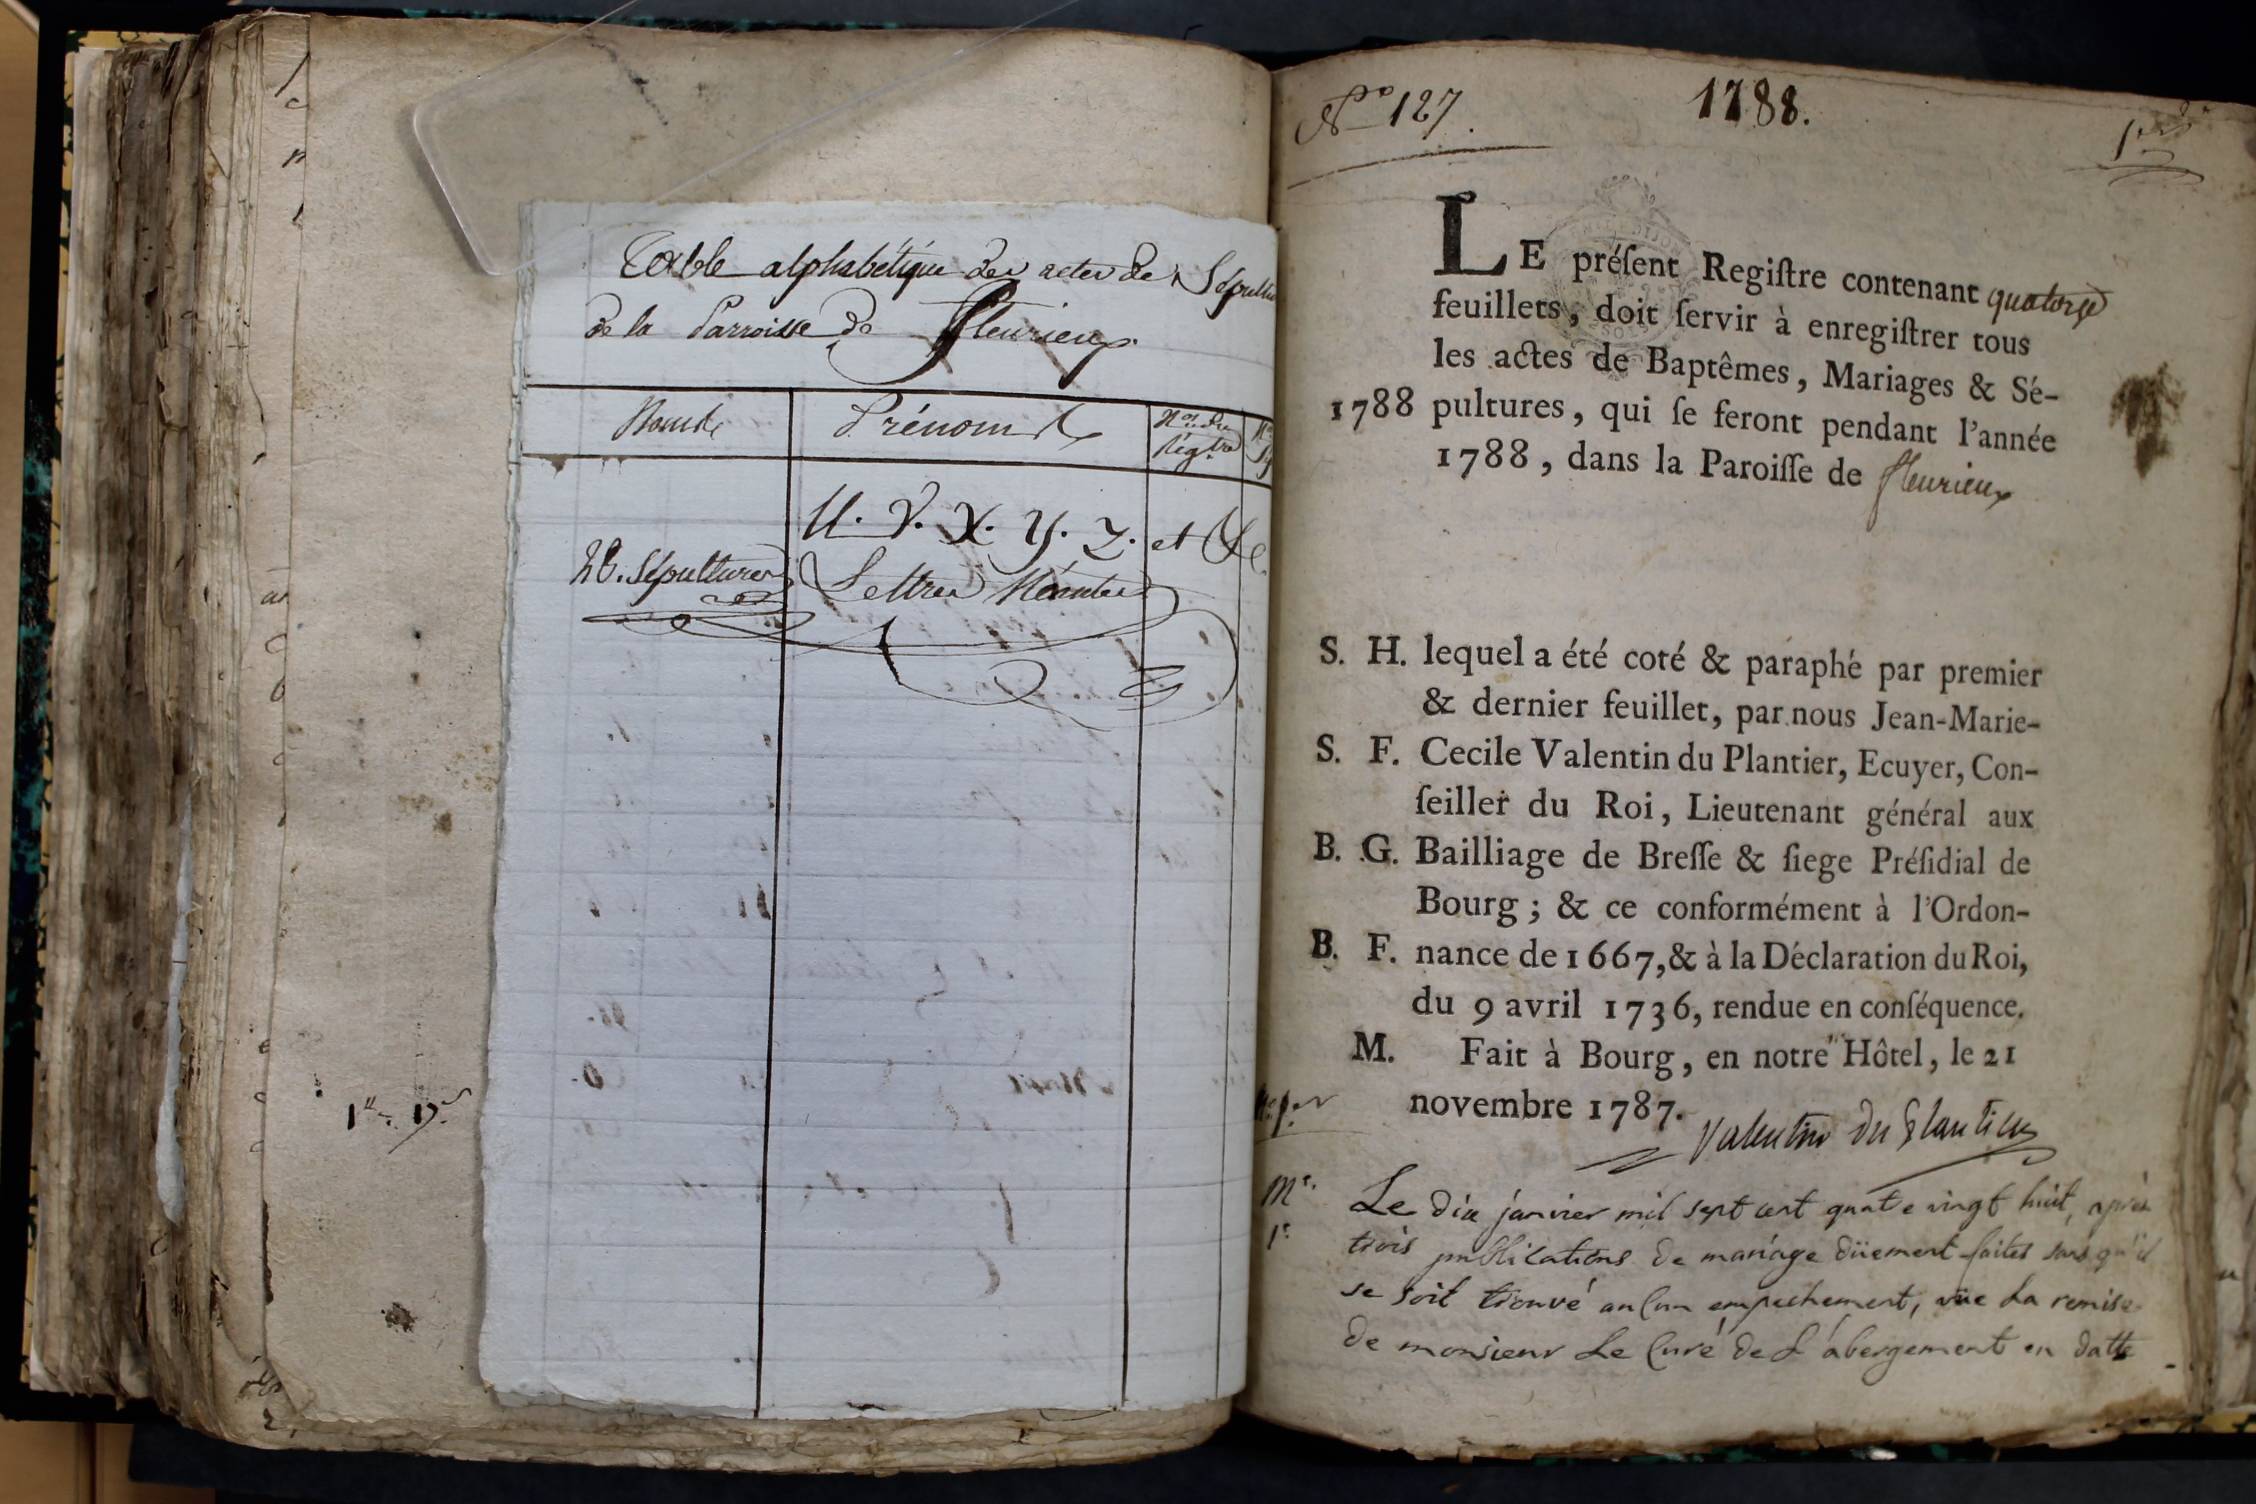 Table alphabétique des actes de Sépultu
de la Parroisse de fleurieux.
Noms Prénoms Nos. du Régtre
U. V. X. Y. Z. et &c
26. Sépultures Lettres Néantes
1er. D.er
No 127. 1788. 1er
LE préſent Regiſtre contenant quatorze
feuillets, doit ſervir à enregiſtrer tous
les actes de Baptêmes, Mariages & Sé-
1788 pultures, qui ſe feront pendant l'année
1788, dans la Paroiſſe de fleurieux
S. H. lequel a été coté & paraphé par premier
& dernier feuillet, par nous Jean-Marie-
S. F. Cecile Valentin du Plantier, Ecuyer, Con-
ſeiller du Roi, Lieutenant général aux
B. G. Bailliage de Breſſe & ſiege Préſidial de
Bourg ; & ce conformément à l'Ordon-
B. F. nance de 1667, & à la Déclaration du Roi,
du 9 avril 1736, rendue en conſéquence.
M. Fait à Bourg, en notre Hôtel, le 21
novembre 1787.
Valentin du Plantier
Mr. Le dix janvier mil sept cent quatre vingt huit, après
1r trois publications de mariage düement faites sans qu'il
se soit trouvé aucun empechement, vüe La remise
de monsieur Le Curé de L'abergement en datte